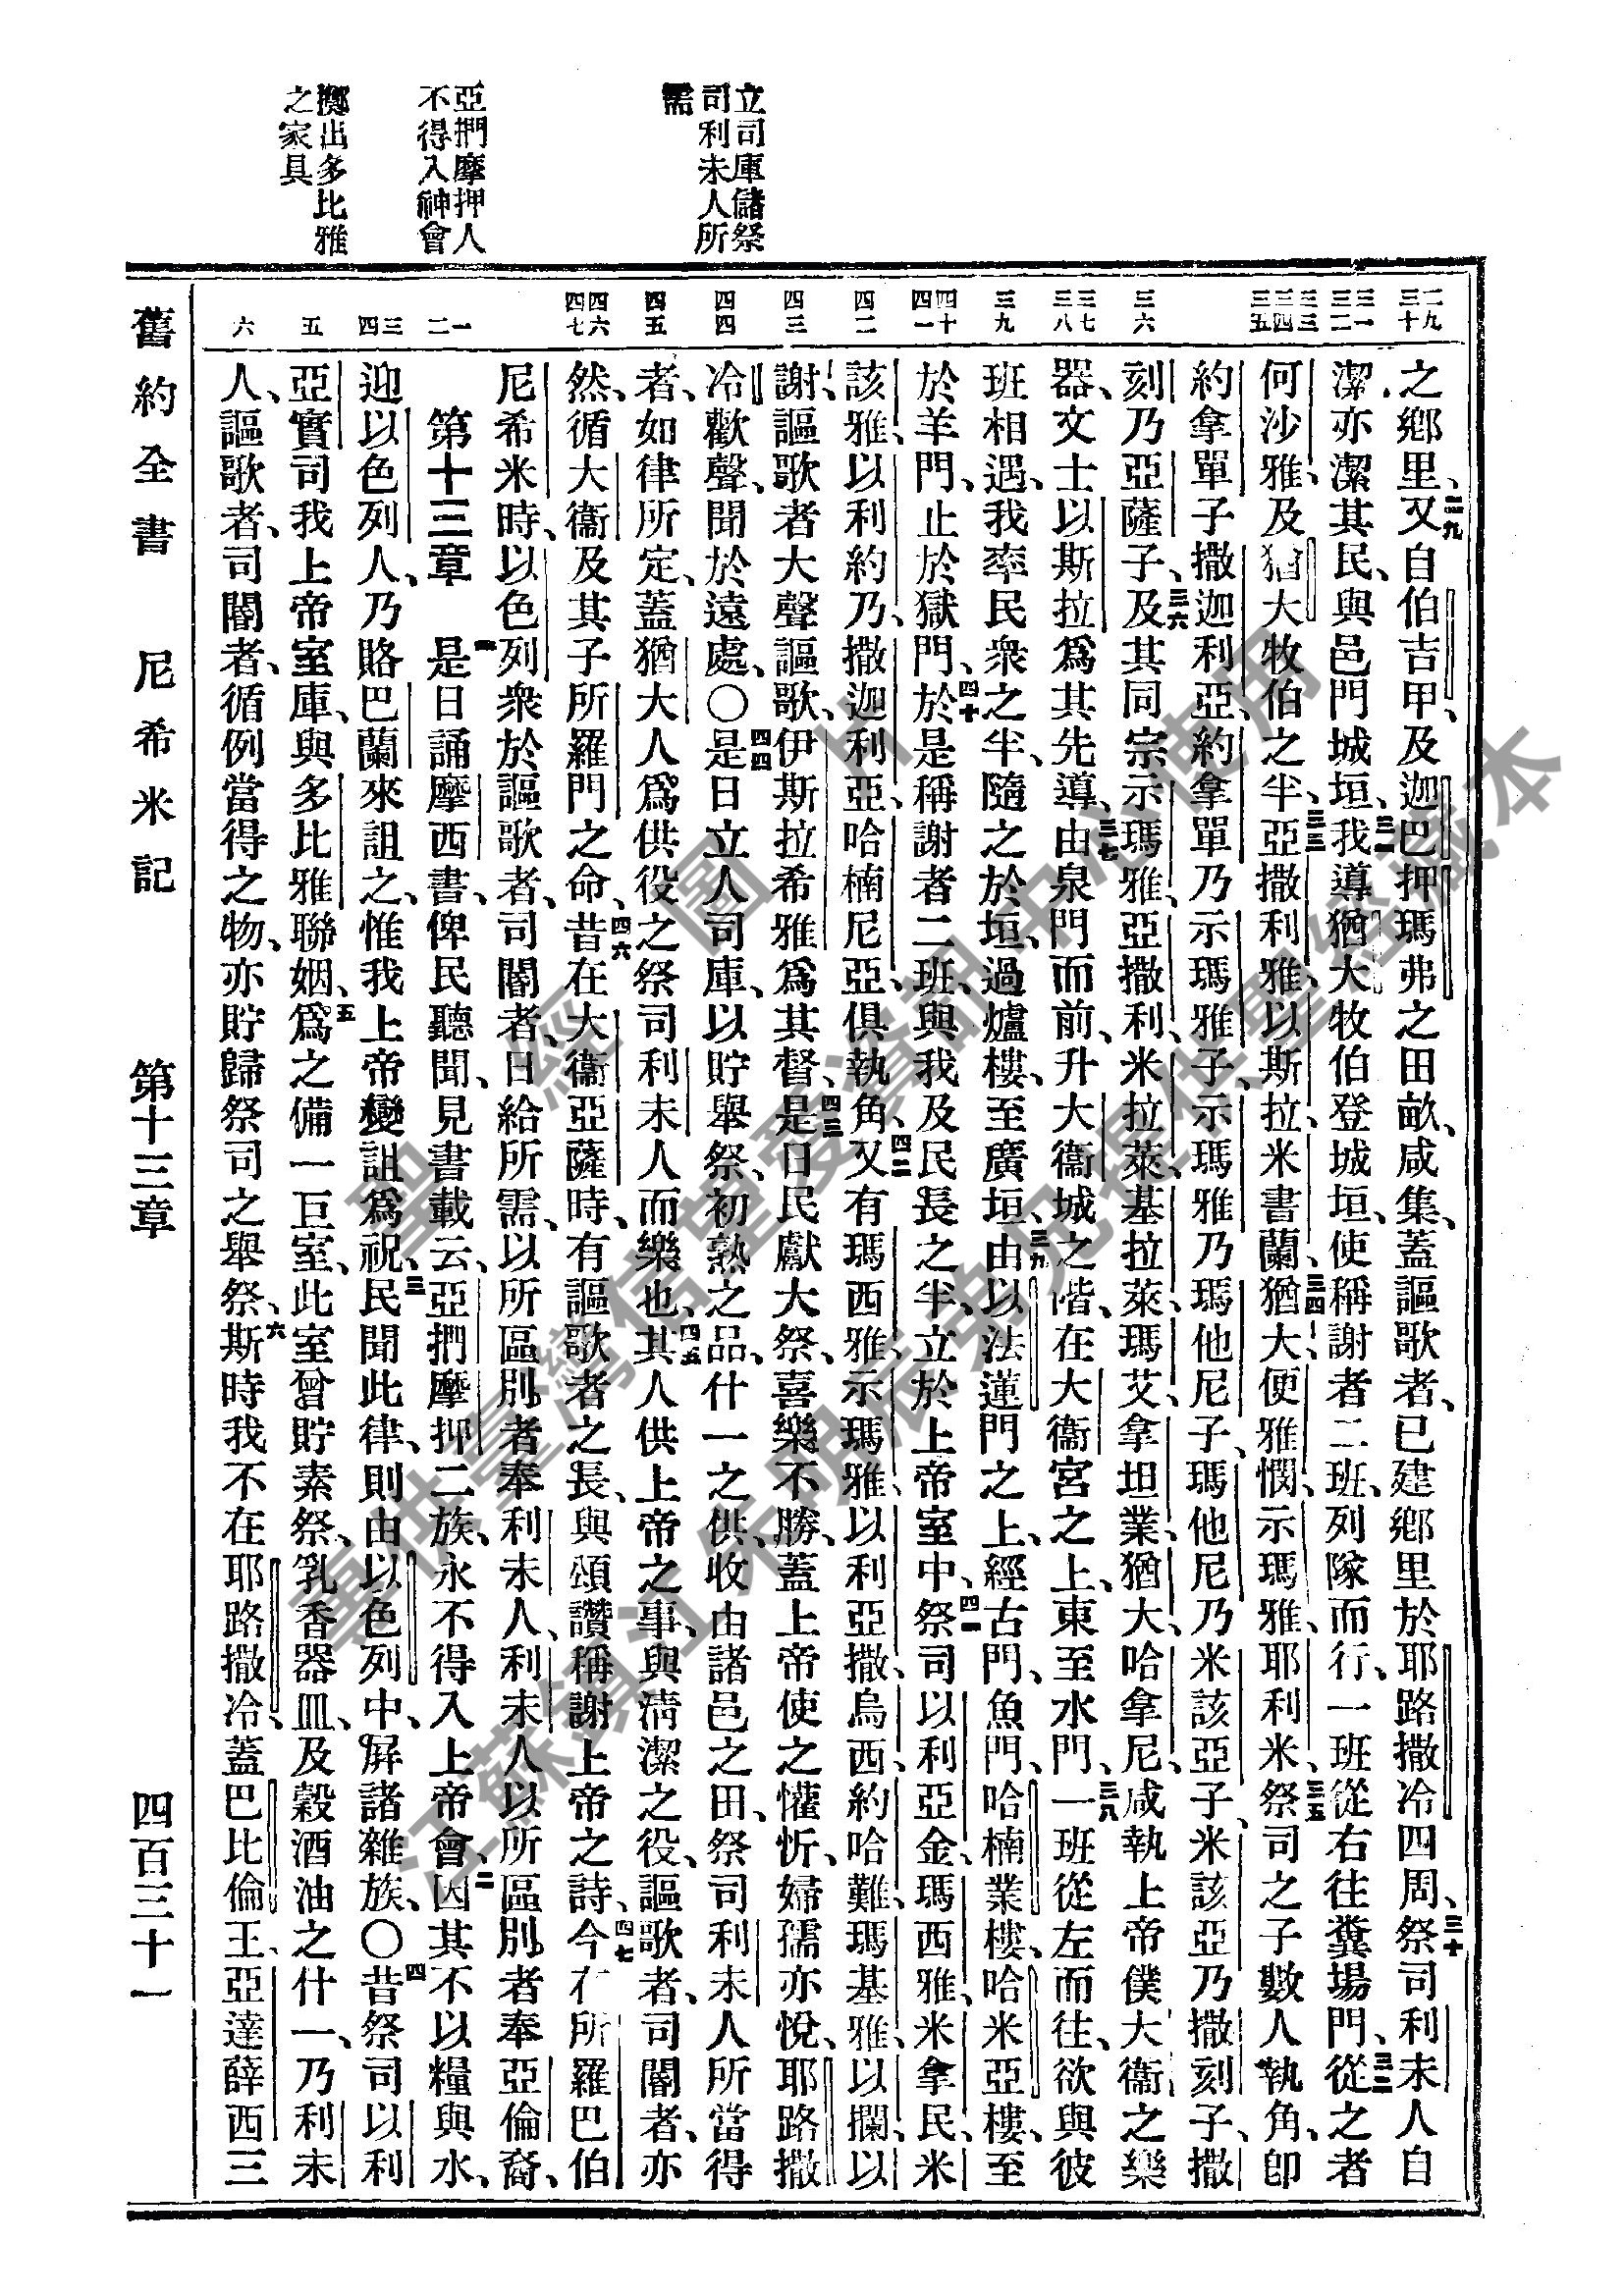 立司庫儲祭
司利未人所
需
亞捫摩押人
不得入神會
擲出多比雅
之家具
二九 三十
三一 三二
三三 三四 三五
三六
三七 三八
三九
四十 四一
四二
四三
四四
四五
四六 四七
一 二
三 四
五
六
之鄉里、二九又自伯吉甲、及迦巴押瑪弗之田畝、咸集、蓋謳歌者、已建鄉里於耶路撒冷四周、三十祭司利未人自
潔、亦潔其民、與邑門城垣、三一我導猶大牧伯登城垣、使稱謝者二班、列隊而行、一班從右往糞場門、三二從之者
何沙雅、及猶大牧伯之半、三三亞撒利雅、以斯拉、米書蘭、三四猶大、便雅憫、示瑪雅、耶利米、三五祭司之子數人執角、卽
約拿單子撒迦利亞、約拿單乃示瑪雅子、示瑪雅乃瑪他尼子、瑪他尼乃米該亞子、米該亞乃撒刻子、撒
刻乃亞薩子、三六及其同宗示瑪雅、亞撒利、米拉萊、基拉萊、瑪艾、拿坦業、猶大、哈拿尼、咸執上帝僕大衞之樂
器、文士以斯拉爲其先導、三七由泉門而前、升大衞城之階、在大衞宮之上、東至水門、三八一班從左而往、欲與彼
班相遇、我率民衆之半、隨之於垣、過爐樓、至廣垣、三九由以法蓮門之上、經古門、魚門、哈楠業樓、哈米亞樓、至
於羊門、止於獄門、四十於是稱謝者二班、與我及民長之半、立於上帝室中、四一祭司以利亞金、瑪西雅、米拿民、米
該雅、以利約乃、撒迦利亞、哈楠尼亞、俱執角、四二又有瑪西雅、示瑪雅、以利亞撒、烏西、約哈難、瑪基雅、以攔、以
謝、謳歌者大聲謳歌、伊斯拉希雅爲其督、四三是日民獻大祭、喜樂不勝、蓋上帝使之懽忻、婦孺亦悅、耶路撒
冷歡聲、聞於遠處、○四四是日立人司庫、以貯舉祭、初熟之品、什一之供、收由諸邑之田、祭司利未人所當得
者、如律所定、蓋猶大人爲供役之祭司利未人而樂也、四五其人供上帝之事、與淸潔之役、謳歌者、司閽者、亦
然、循大衞及其子所羅門之命、四六昔在大衞亞薩時、有謳歌者之長、與頌讚稱謝上帝之詩、四七今在所羅巴伯
尼希米時、以色列衆於謳歌者、司閽者、日給所需、以所區別者奉利未人、利未人以所區別者奉亞倫裔、
第十三章 一是日誦摩西書、俾民聽聞、見書載云、亞捫摩押二族、永不得入上帝會、二因其不以糧與水、
迎以色列人、乃賂巴蘭來詛之、惟我上帝變詛爲祝、三民聞此律、則由以色列中、屏諸雜族、○四昔祭司以利
亞實司我上帝室庫、與多比雅聯姻、五爲之備一巨室、此室曾貯素祭、乳香器皿、及穀酒油之什一、乃利未
人、謳歌者、司閽者、循例當得之物、亦貯歸祭司之舉祭、六斯時我不在耶路撒冷、蓋巴比倫王、亞達薛西三
舊約全書 尼希米記 第十三章 四百三十一
聖經圖片
專供臺灣信望愛資訊中心使用
江蘇鎮江朱明辰弟兄提供聖經藏本